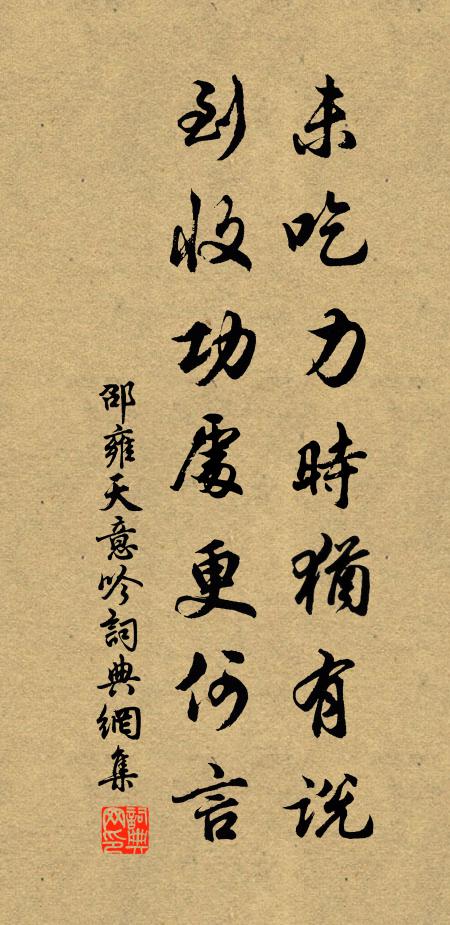 未吃力時猶有説
到收功處更何言
邵雍天意吟詞典網集
詞典网印